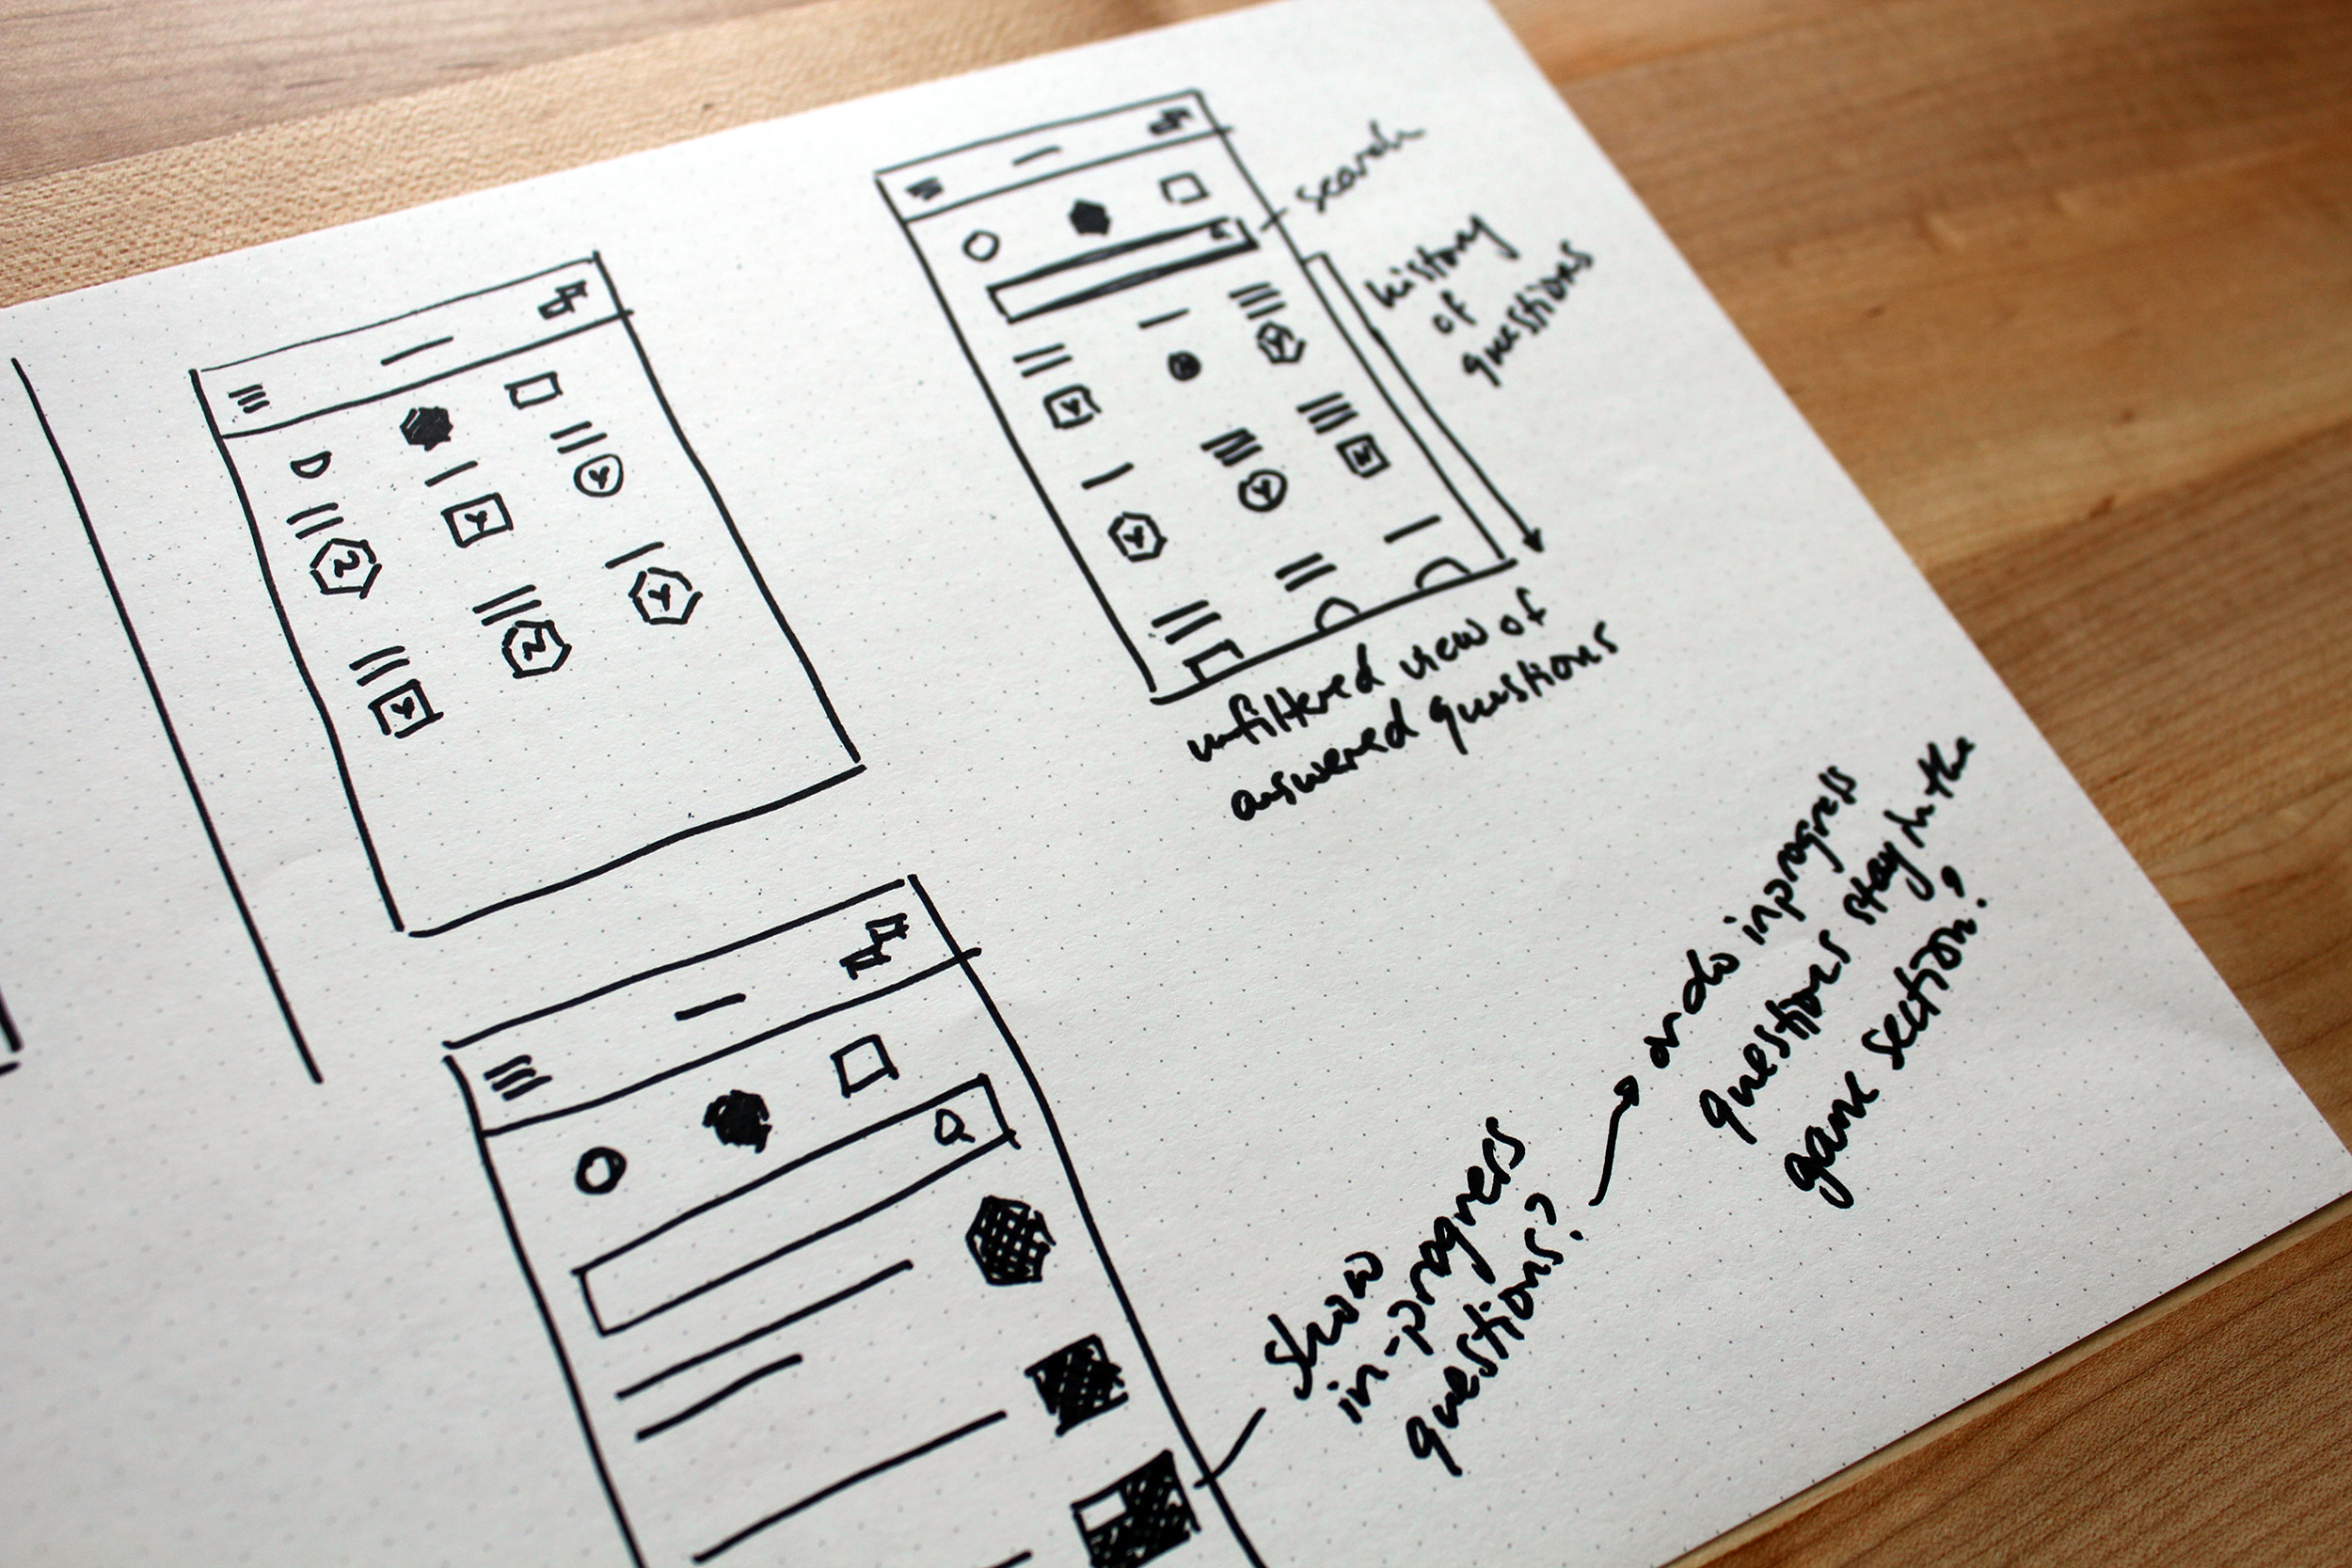 search
history
of
questions
unfiltered view of
answered questions
show
in-progress
questions?
or do inprogress
questions stay in the
game section?